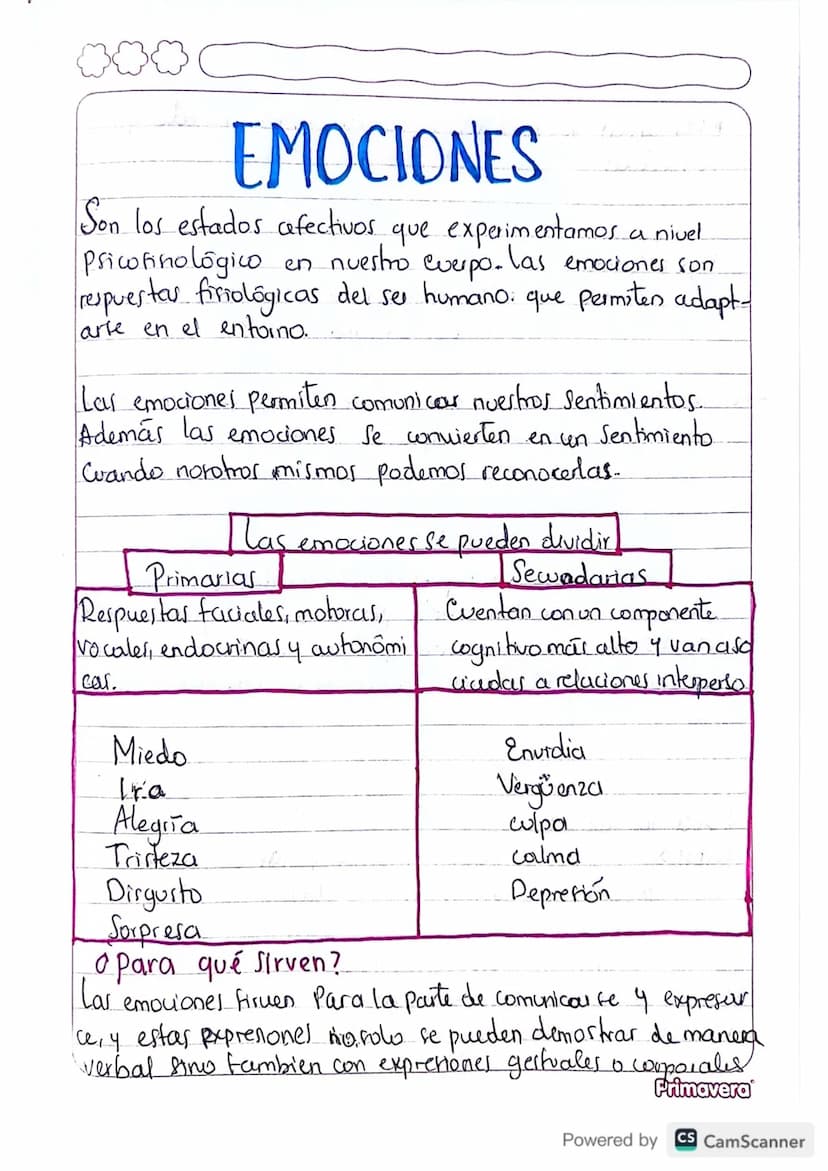 EMOCIONES
Son los estados afectivos que experimentamos a nivel
psicofinológico en nuestro cuerpo. las emociones son
respuestas fisiológicas del ser humano. que permiten adapt-
arse en el entorno.
Las emociones permiten comunicar nuestros sentimientos.
Además las emociones se convierten en un sentimiento
Cuando nosotros mismos podemos reconocerlas.
Las emociones se pueden dividir
Primarias
Secundarias
Respuestas faciales, motoras,
vocales, endocrinas y autonómi
cas.
Cuentan con un componente
cognitivo más alto y van aso
ciadas a relaciones interperso
Miedo
Ira
Alegría
Tristeza
Disgusto
Sorpresa
Envidia
Vergüenza
culpa
calma
Depresión
Para qué sirven?
Las emociones sirven Para la parte de comunicarse y expresar
se, y estas expresiones no solo se pueden demostrar de manera
verbal sino tambien con expresiones gestuales o corporales
Primavera
Powered by CS CamScanner